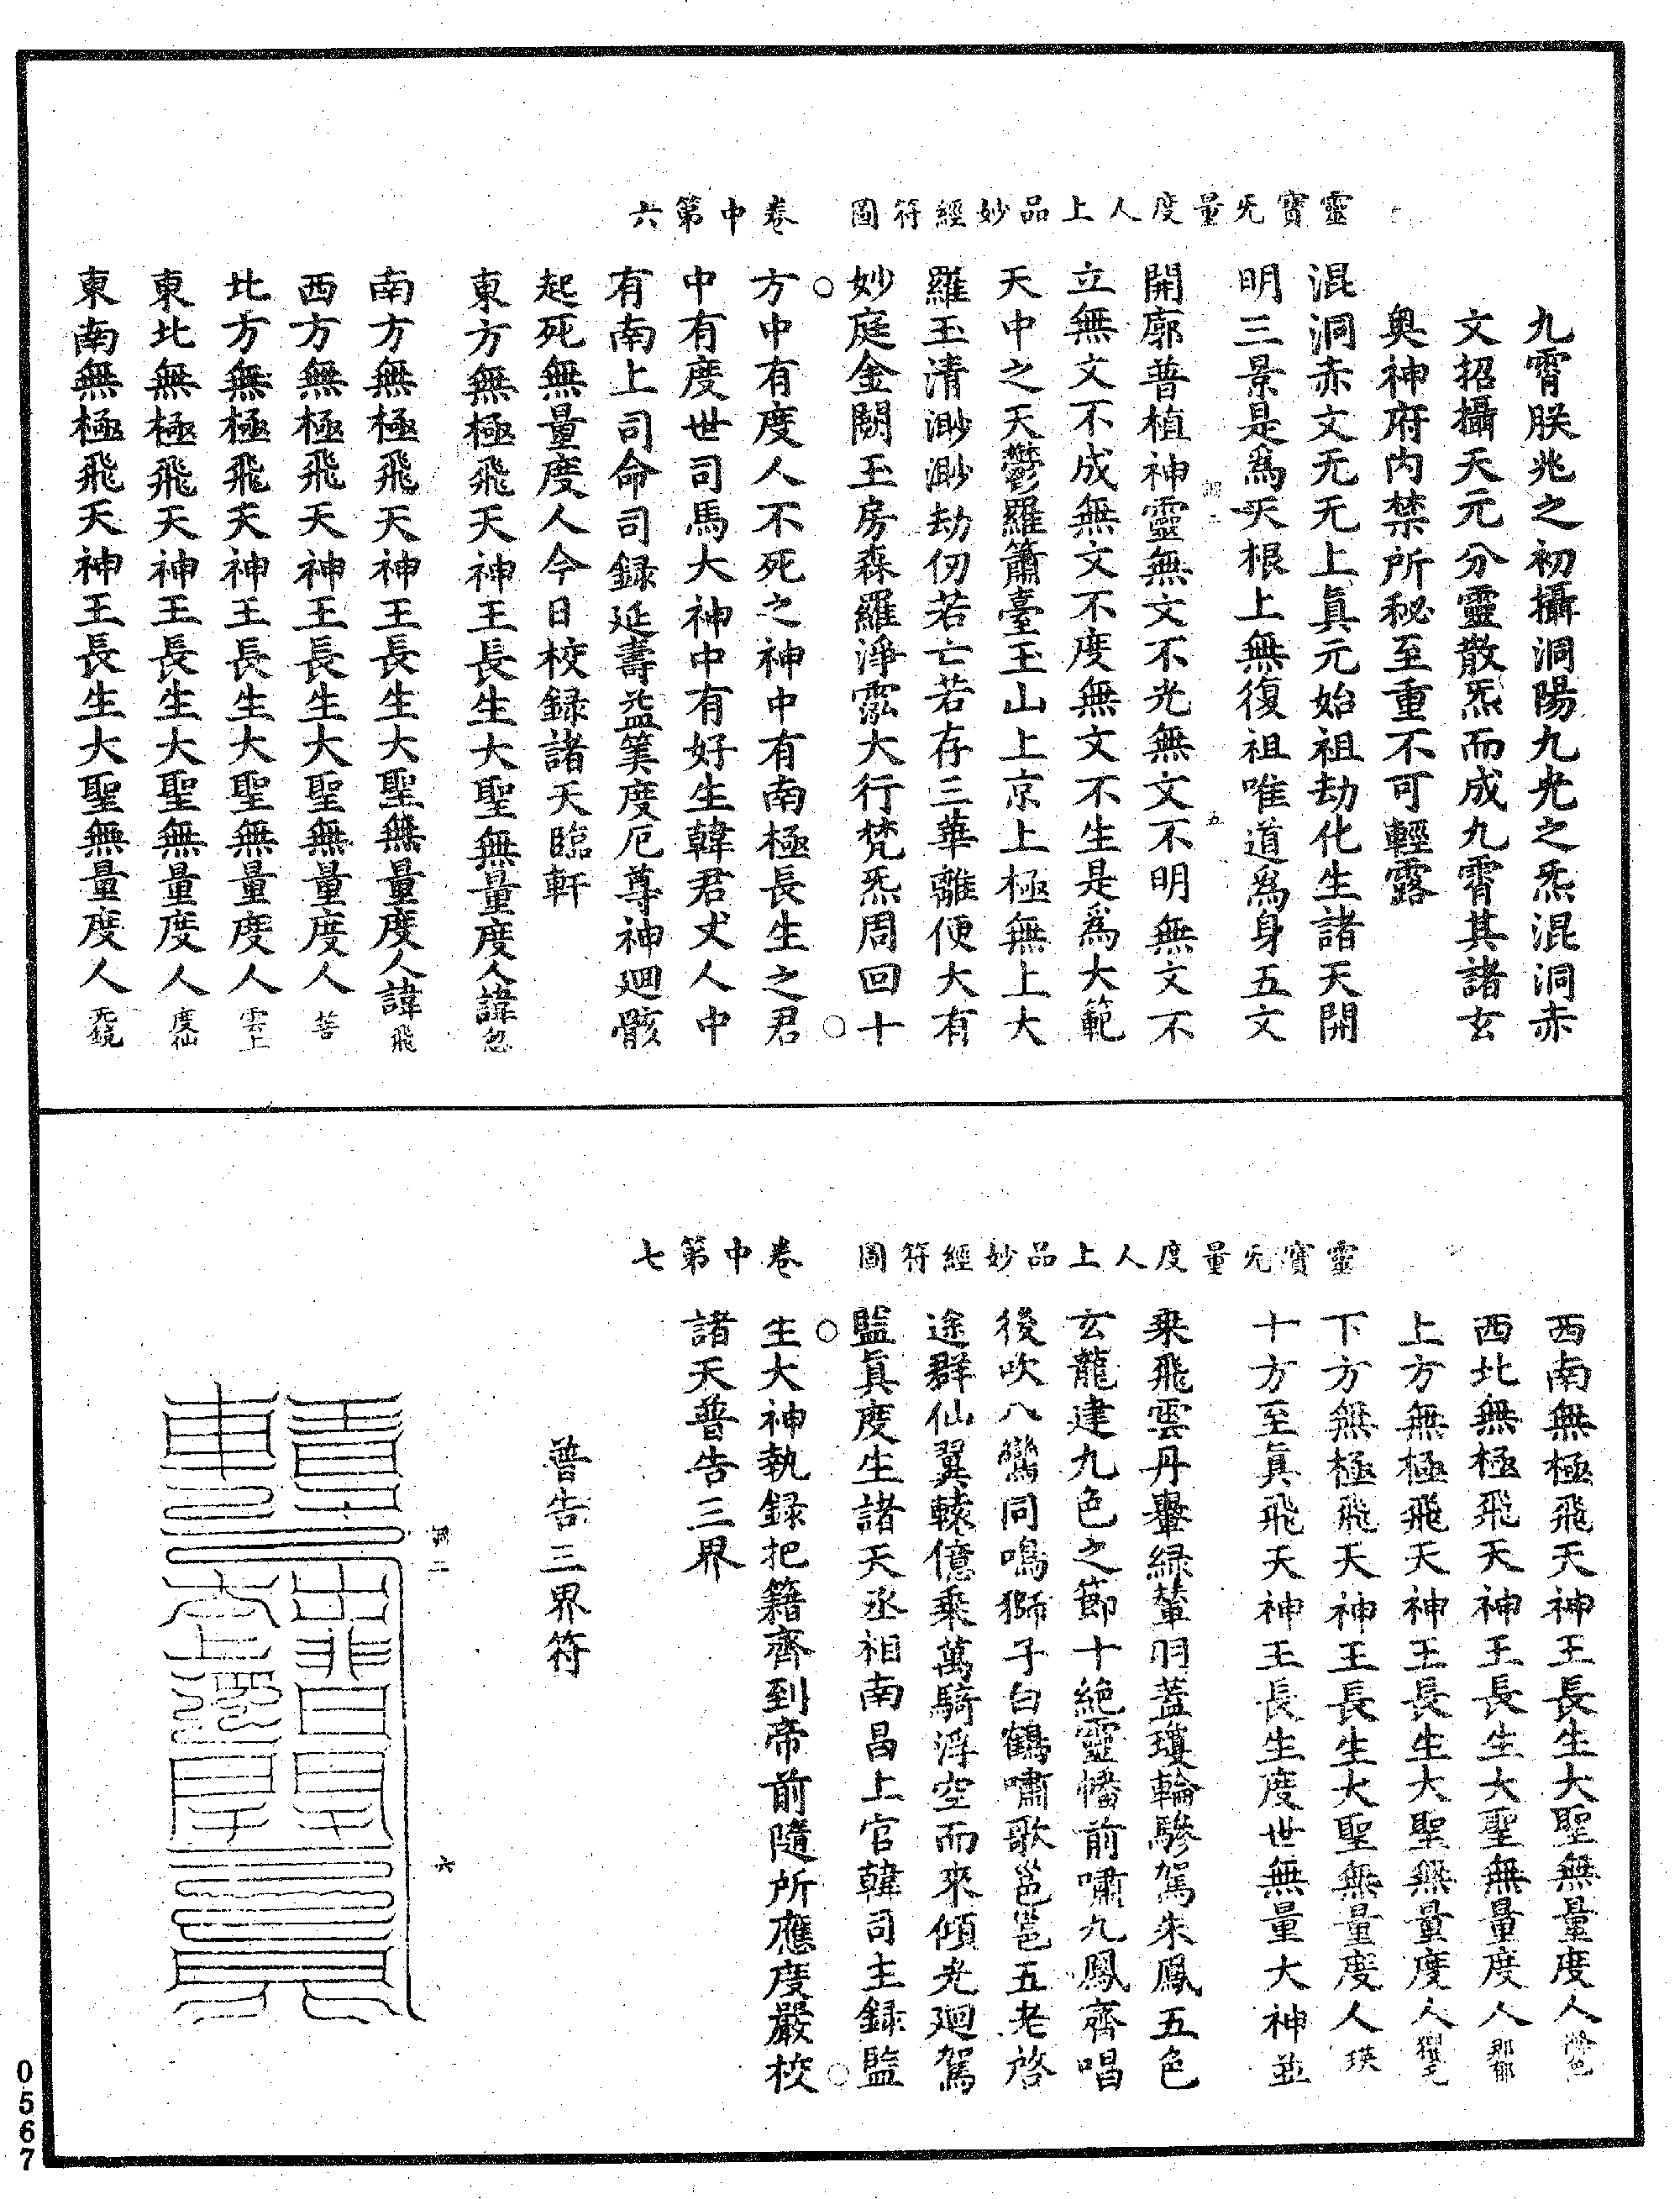 靈寶无量度人上品妙經符圖　卷中第六
九霄朕兆之初攝洞陽九光之炁混洞赤
文招攝天元分靈散炁而成九霄其諸玄
奧神府內禁所秘至重不可輕露
混洞赤文无无上真元始祖劫化生諸天開
明三景是為天根上無復祖唯道為身五文
開廓普植神靈無文不光無文不明無文不
立無文不成無文不度無文不生是為大範
天中之天鬱羅簫臺玉山上京上極無上大
羅玉清渺渺劫仞若亡若存三華離便大有
妙庭金闕玉房森羅淨泓大行梵炁周回十
方中有度人不死之神中有南極長生之君
中有度世司馬大神中有好生韓君丈人中
有南上司命司錄延壽益筭度厄尊神迴骸
起死無量度人今日校錄諸天臨軒
東方無極飛天神王長生大聖無量度人諱忽
南方無極飛天神王長生大聖無量度人諱飛
西方無極飛天神王長生大聖無量度人
北方無極飛天神王長生大聖無量度人雲上
東北無極飛天神王長生大聖無量度人度仙
東南無極飛天神王長生大聖無量度人
靈寶无量度人上品妙經符圖　卷中第七
西南無極飛天神王長生大聖無量度人
西北無極飛天神王長生大聖無量度人那郁
上方無極飛天神王長生大聖無量度人
下方無極飛天神王長生大聖無量度人瑛
十方至真飛天神王長生度世無量大神並
乘飛雲丹轝綠輦羽蓋瓊輪驂駕朱鳳五色
玄龍建九色之節十絕靈幡前嘯九鳳齊唱
後吹八鸞同鳴獅子白鶴嘯歌邕邕五老啓
途群仙翼轅億乘萬騎浮空而來傾光迴駕
監真度生諸天丞相南昌上官韓司主錄監
生大神執錄把籍齊到帝前隨所應度嚴校
諸天普告三界
普告三界符
二
六
0567